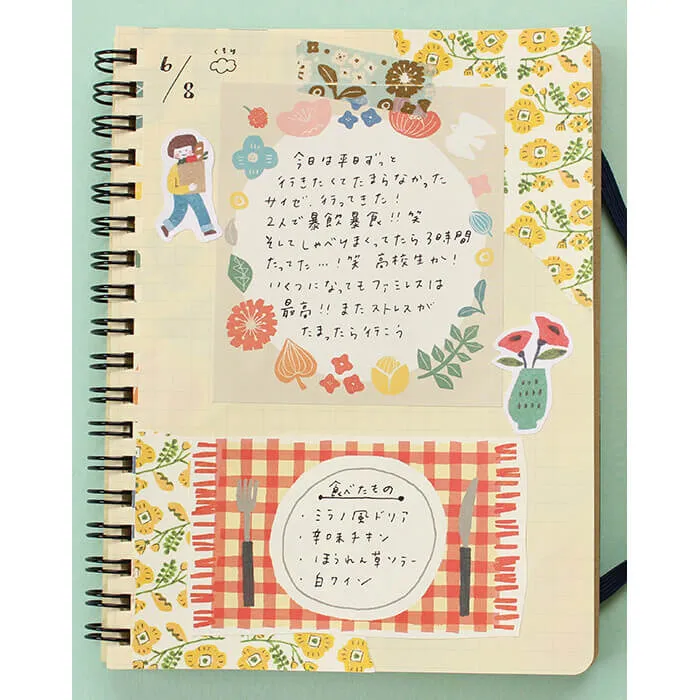 6/8
くもり
今日は平日ずっと
行きたくてたまらなかった
サイゼ、行ってきた!
2人で暴飲暴食!!笑
そしてしゃべりまくってたら3時間
たってた…!笑 高校生か!
いくつになってもファミレスは
最高!!またストレスが
たまったら行こう
食べたもの
・ミラノ風ドリア
・辛味チキン
・ほうれん草ソテー
・白ワイン